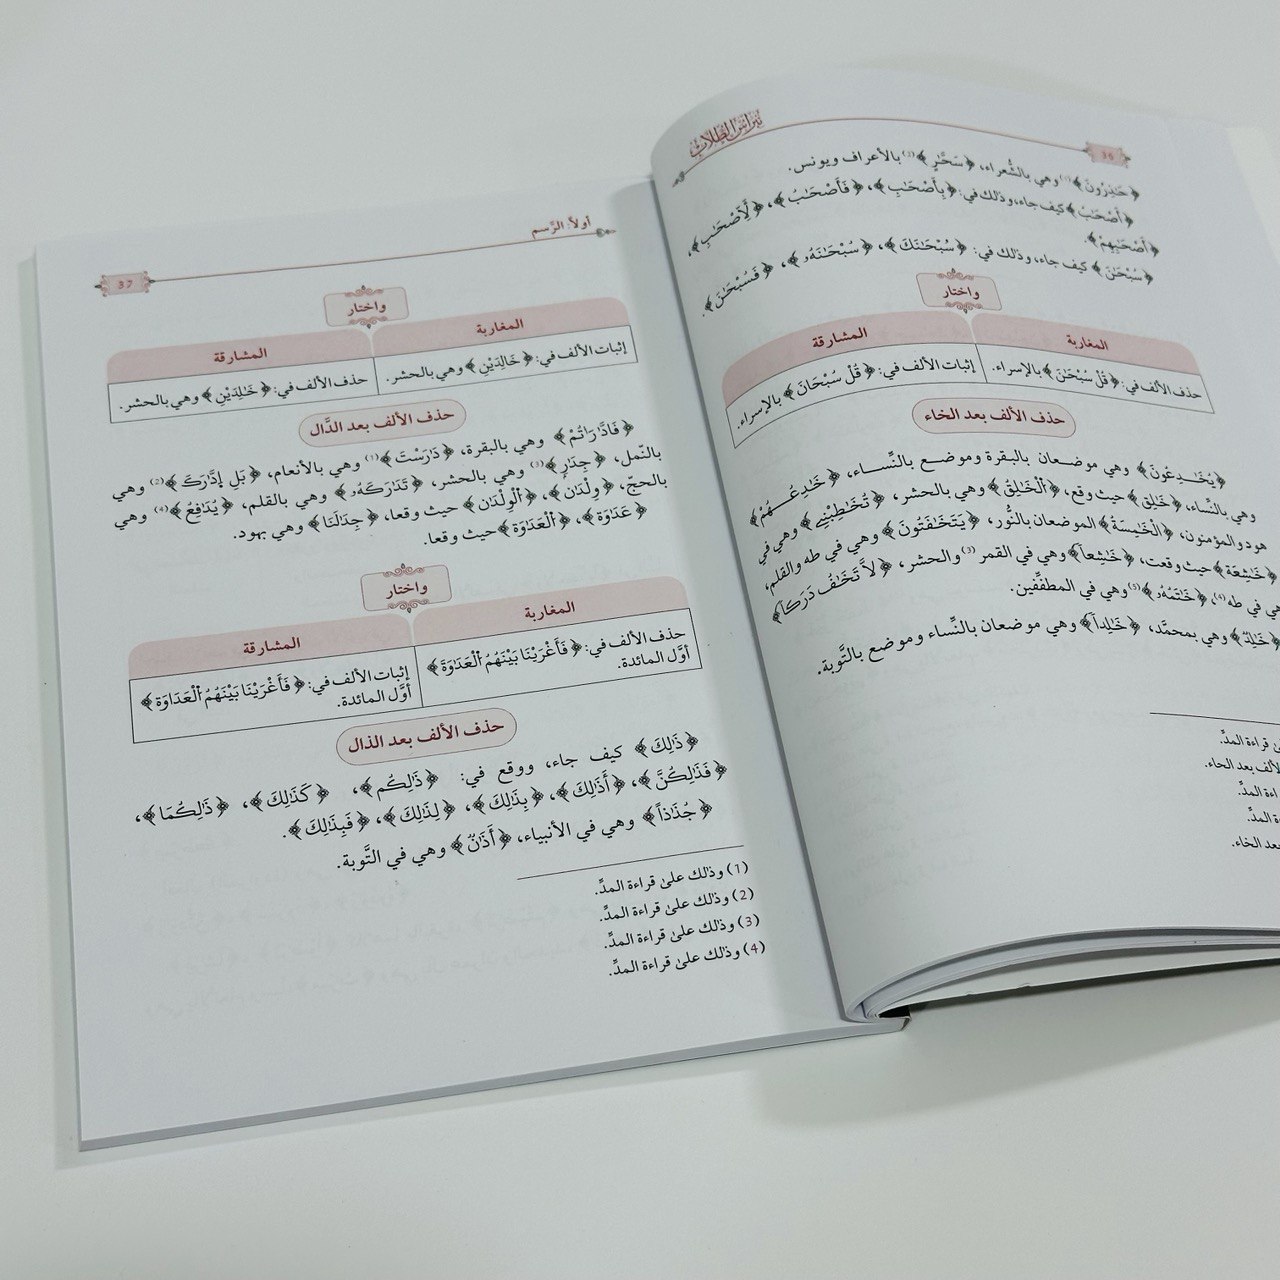 نبراس الطلاب
36
﴿حَٰذِرُونَ﴾(1) وهي بالشُّعراء، ﴿سَحَّٰرٍ﴾(2) بالأعراف ويونس.
﴿أَصْحَٰبُ﴾ كيف جاء، وذلك في: ﴿بِأَصْحَٰبِ﴾، ﴿فَأَصْحَٰبُ﴾، ﴿لِّأَصْحَٰبِ﴾،
﴿أَصْحَٰبِهِمْ﴾.
﴿سُبْحَٰنَ﴾ كيف جاء، وذلك في: ﴿سُبْحَٰنَكَ﴾، ﴿سُبْحَٰنَهُۥ﴾، ﴿فَسُبْحَٰنَ﴾.
واختار
المغاربة
المشارقة
حذف الألف في: ﴿قُلْ سُبْحَٰنَ﴾ بالإسراء.
إثبات الألف في: ﴿قُلْ سُبْحَانَ﴾ بالإسراء.
حذف الألف بعد الخاء
﴿يُخَٰدِعُونَ﴾ وهي موضعان بالبقرة وموضع بالنِّساء، ﴿خَٰدِعُهُمْ﴾
وهي بالنِّساء، ﴿خَٰلِقُ﴾ حيث وقع، ﴿اَلْخَٰلِقُ﴾ وهي بالحشر، ﴿تُخَٰطِبْنِے﴾ وهي في
هود والمؤمنون، ﴿اَلْخَٰمِسَةُ﴾ الموضعان بالنُّور، ﴿يَتَخَٰفَتُونَ﴾ وهي في طه والقلم،
﴿خَٰشِعَةً﴾ حيث وقعت، ﴿خَٰشِعاً﴾ وهي في القمر(3) والحشر، ﴿لَّا تَخَٰفُ دَرَكاً﴾
هي في طه(4)، ﴿خَٰتَمُهُۥ﴾(5) وهي في المطفِّفين.
﴿خَٰلِدٌ﴾ وهي بمحمَّد، ﴿خَٰلِداً﴾ وهي موضعان بالنِّساء وموضع بالتَّوبة.
قراءة المدِّ.
لألف بعد الحاء.
المدِّ.
المدِّ.
بعد الخاء.
أولاً: الرَّسم
37
واختار
المغاربة
المشارقة
إثبات الألف في: ﴿خَالِدَيْنِ﴾ وهي بالحشر.
حذف الألف في: ﴿خَٰلِدَيْنِ﴾ وهي بالحشر.
حذف الألف بعد الدَّال
﴿فَادَّٰرَٰتُمْ﴾ وهي بالبقرة، ﴿دَٰرَسْتَ﴾(1) وهي بالأنعام، ﴿بَلِ إِدَّٰرَكَ﴾(2) وهي
بالنّمل، ﴿جِدَٰرٍ﴾(3) وهي بالحشر، ﴿تَدَٰرَكَهُۥ﴾ وهي بالقلم، ﴿يُدَٰفِعُ﴾(4) وهي
بالحجّ، ﴿وِلْدَٰن﴾، ﴿اَلْوِلْدَٰن﴾ حيث وقعا، ﴿جِدَٰلَنَا﴾ وهي بهود.
﴿عَدَٰوَة﴾، ﴿اَلْعَدَٰوَة﴾ حيث وقعا.
واختار
المغاربة
المشارقة
حذف الألف في: ﴿فَأَغْرَيْنَا بَيْنَهُمُ اُلْعَدَٰوَةَ﴾
أوَّل المائدة.
إثبات الألف في: ﴿فَأَغْرَيْنَا بَيْنَهُمُ اُلْعَدَاوَةَ﴾
أوَّل المائدة.
حذف الألف بعد الذال
﴿ذَٰلِكَ﴾ كيف جاء، ووقع في: ﴿ذَٰلِكُم﴾، ﴿كَذَٰلِكَ﴾، ﴿ذَٰلِكُمَا﴾،
﴿فَذَٰلِكُنَّ﴾، ﴿أَذَٰلِكَ﴾، ﴿بِذَٰلِكَ﴾، ﴿لِذَٰلِكَ﴾، ﴿فَبِذَٰلِكَ﴾.
﴿جُذَٰذاً﴾ وهي في الأنبياء، ﴿أَذَٰنٌ﴾ وهي في التَّوبة.
(1) وذلك على قراءة المدِّ.
(2) وذلك على قراءة المدِّ.
(3) وذلك على قراءة المدِّ.
(4) وذلك على قراءة المدِّ.